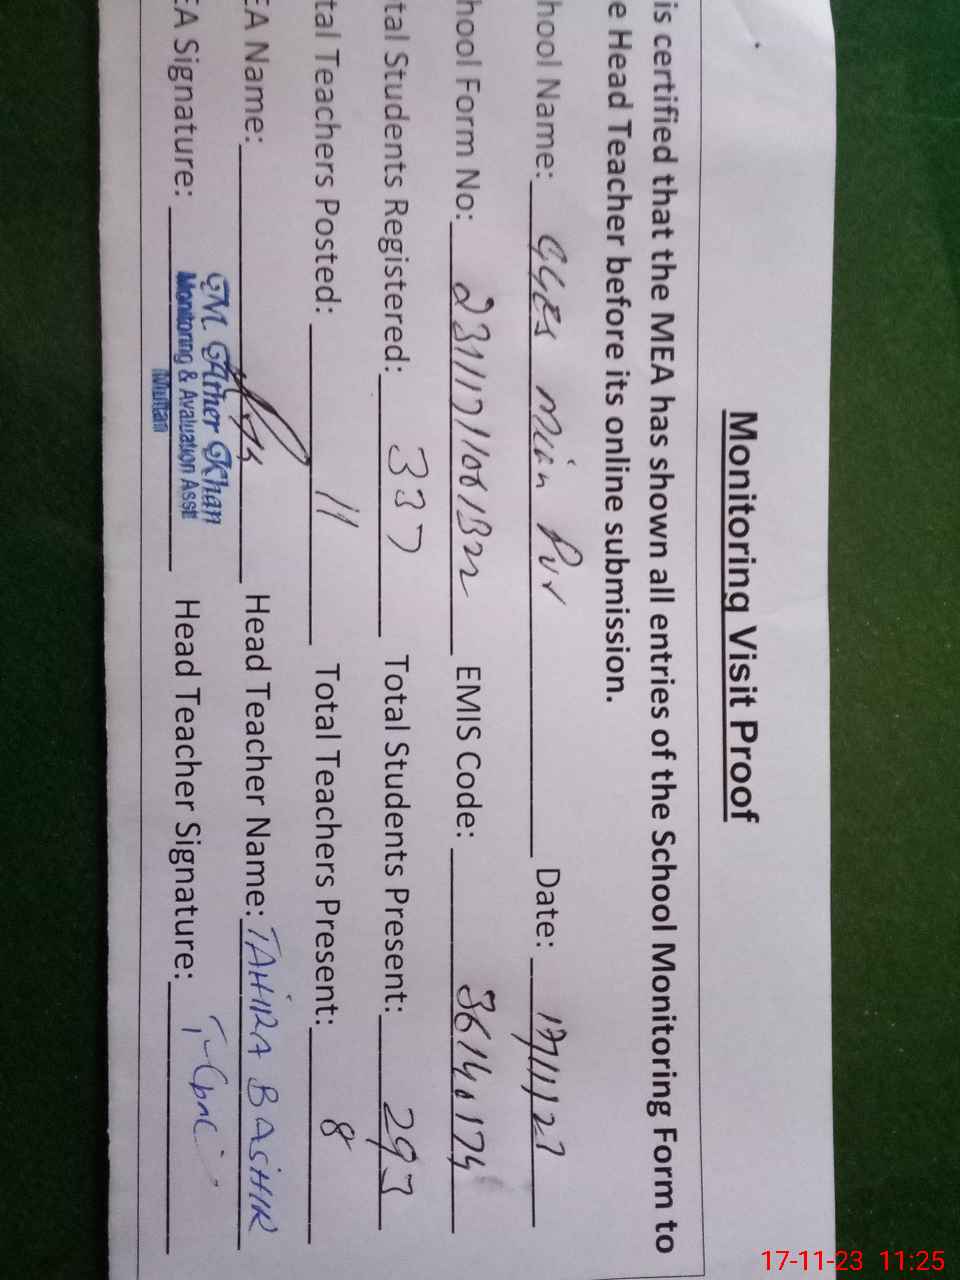 Monitoring Visit Proof
is certified that the MEA has shown all entries of the School Monitoring Form to
e Head Teacher before its online submission.
hool Name: GGES Mian Pur Date: 17/11/23
hool Form No: EMIS Code:
tal Students Registered: 337 Total Students Present: 293
tal Teachers Posted: 11 Total Teachers Present: 8
EA Name: Head Teacher Name: TAHIRA BASHIR
EA Signature: M. Ather Khan Head Teacher Signature:
Monitoring & Evaluation Asstt
Multan
17-11-23 11:25